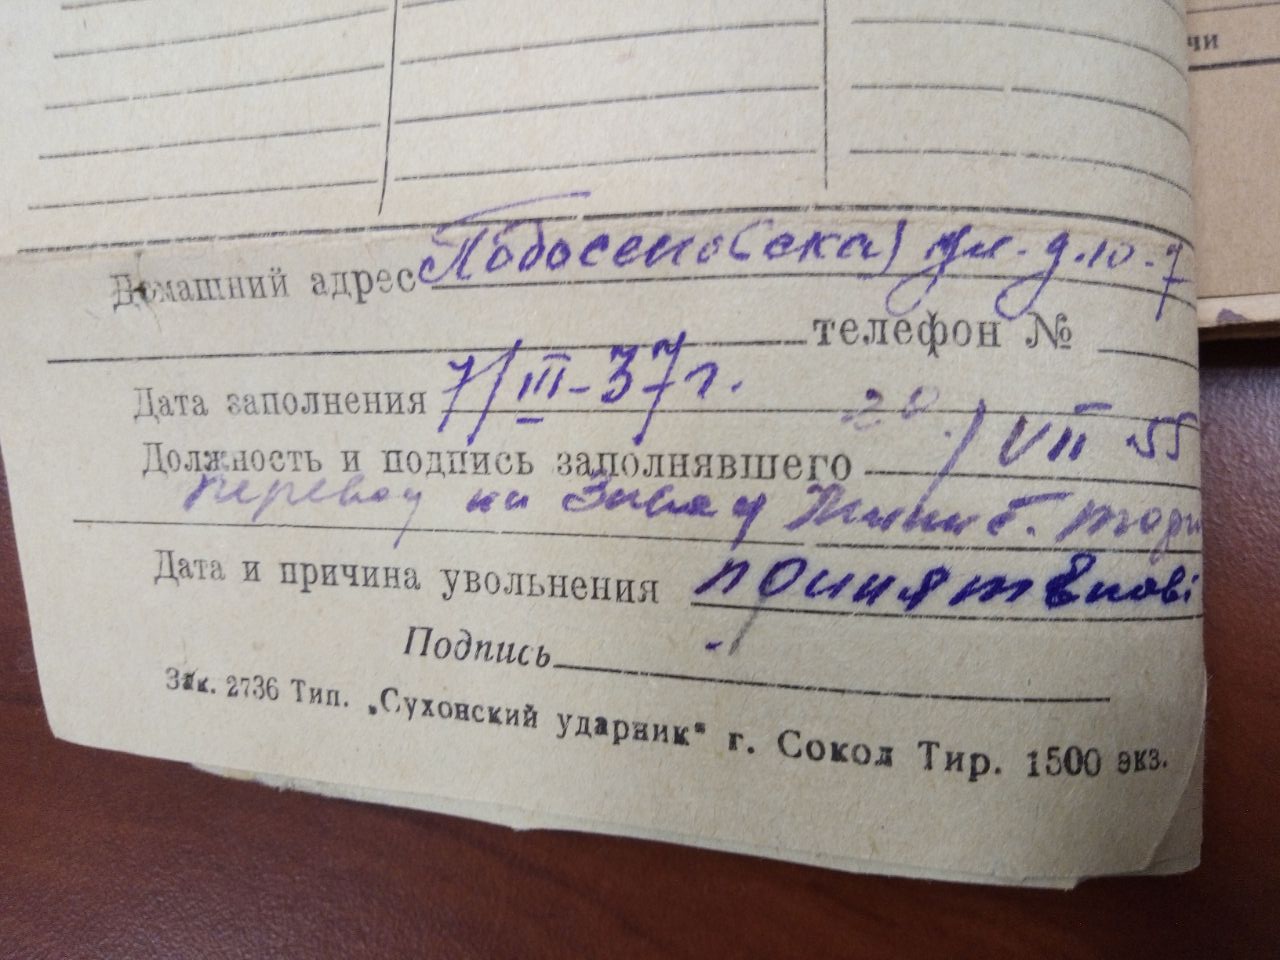 чи
Домашний адрес ул. д. 10-7
телефон №
Дата заполнения 7/III-37 г.
20/VII 55
Должность и подпись заполнявшего
перевод на
Дата и причина увольнения принят вновь
Подпись
Зак. 2736 Тип. „Сухонский ударник" г. Сокол Тир. 1500 экз.